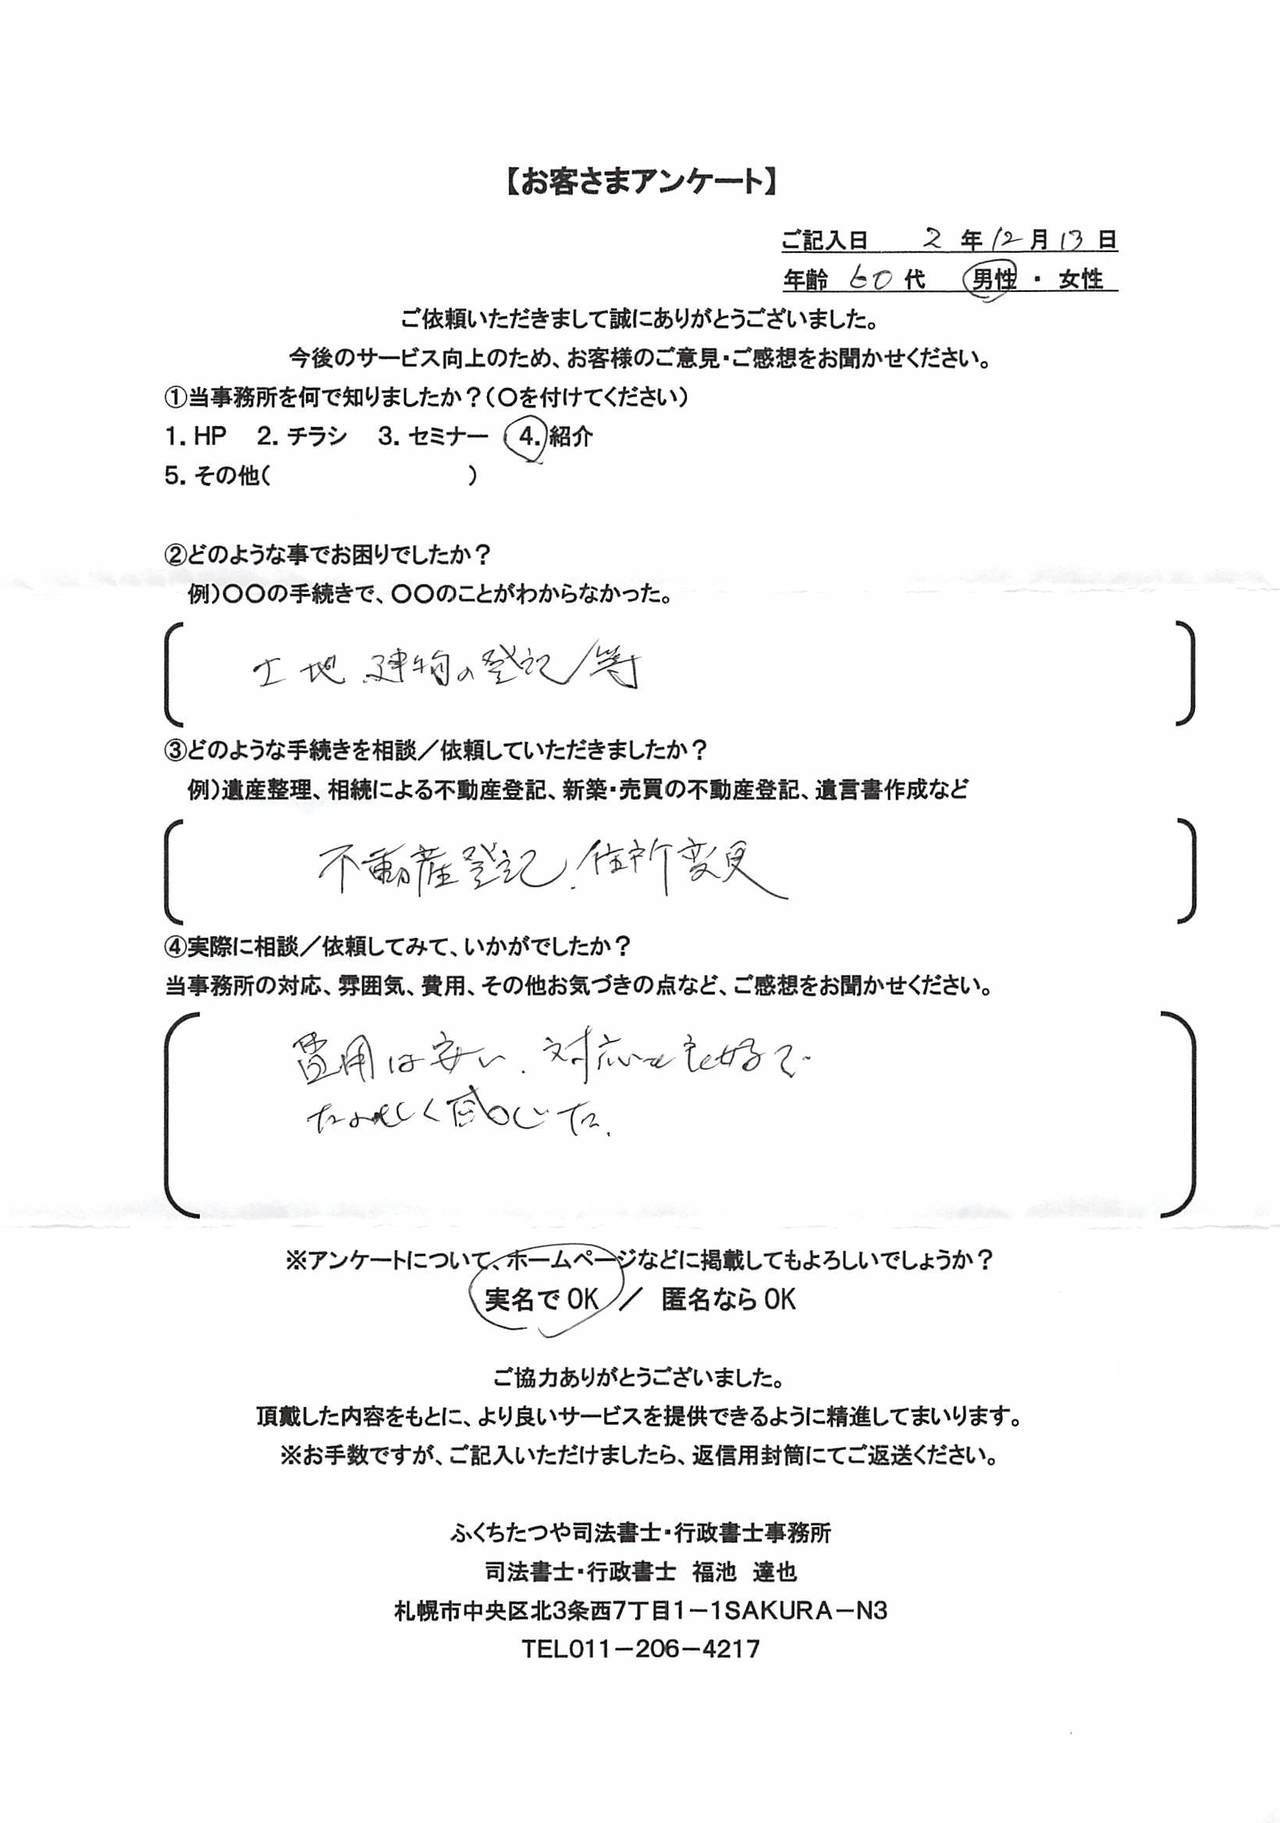 【お客さまアンケート】
ご記入日 2 年 12 月 13 日
年齢 60 代 男性 ・ 女性
ご依頼いただきまして誠にありがとうございました。
今後のサービス向上のため、お客様のご意見・ご感想をお聞かせください。
①当事務所を何で知りましたか？(〇を付けてください)
1. HP 2. チラシ 3. セミナー 4. 紹介
5. その他( )
②どのような事でお困りでしたか？
例)〇〇の手続きで、〇〇のことがわからなかった。
土地、建物の登記等
③どのような手続きを相談／依頼していただきましたか？
例)遺産整理、相続による不動産登記、新築・売買の不動産登記、遺言書作成など
不動産登記、住所変更
④実際に相談／依頼してみて、いかがでしたか？
当事務所の対応、雰囲気、費用、その他お気づきの点など、ご感想をお聞かせください。
費用は安い、対応も良好で
たのもしく感じた。
※アンケートについて、ホームページなどに掲載してもよろしいでしょうか？
実名で OK ／ 匿名なら OK
ご協力ありがとうございました。
頂戴した内容をもとに、より良いサービスを提供できるように精進してまいります。
※お手数ですが、ご記入いただけましたら、返信用封筒にてご返送ください。
ふくちたつや司法書士・行政書士事務所
司法書士・行政書士 福池 達也
札幌市中央区北3条西7丁目1－1SAKURA－N3
TEL011－206－4217